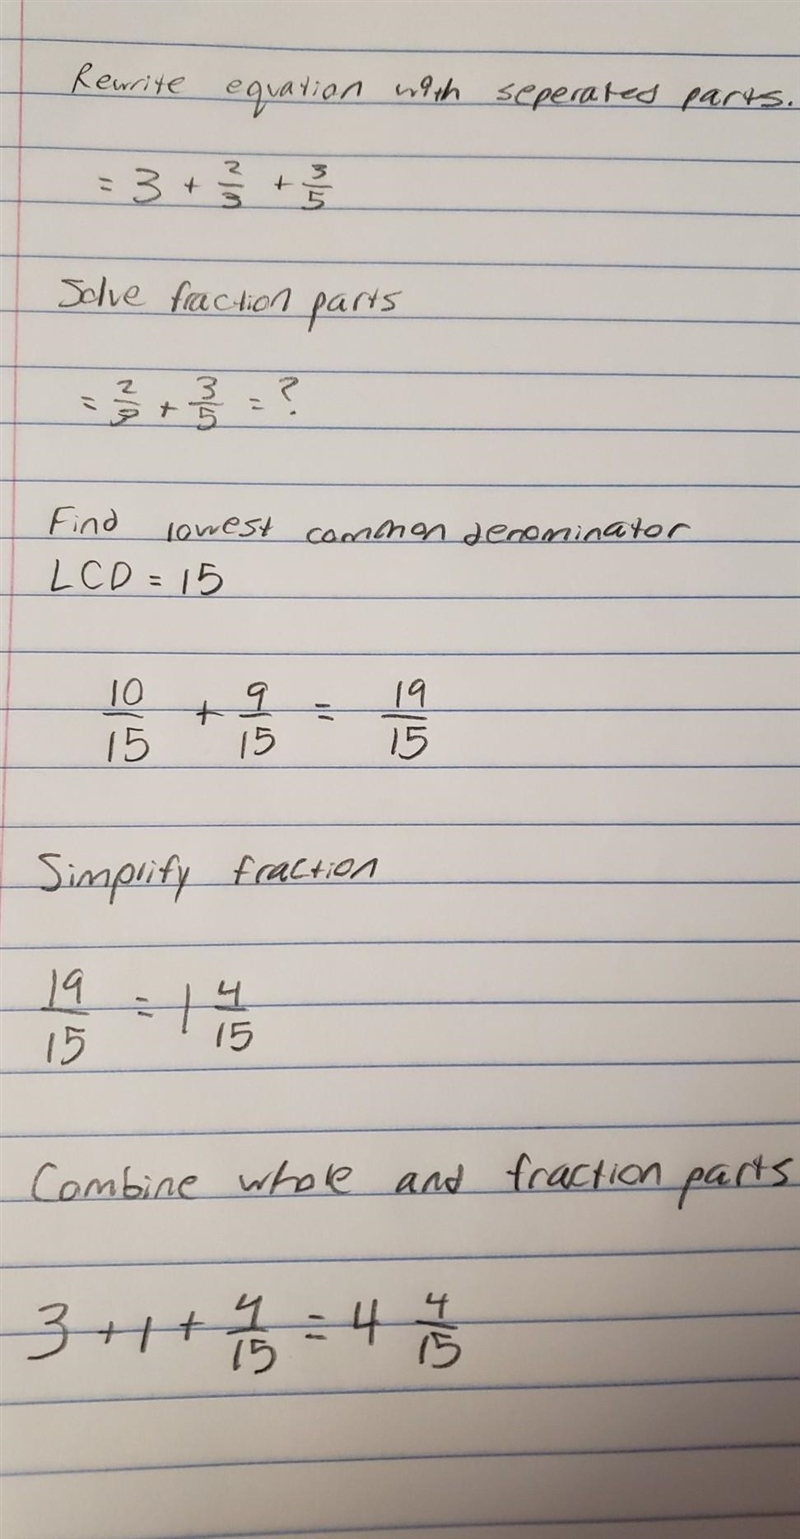 Rewrite equation with seperated parts.
= 3 + 2/3 + 3/5
Solve fraction parts
= 2/3 + 3/5 = ?
Find lowest common denominator
LCD = 15
10/15 + 9/15 = 19/15
Simplify fraction
19/15 = 1 4/15
Combine whole and fraction parts
3 + 1 + 4/15 = 4 4/15